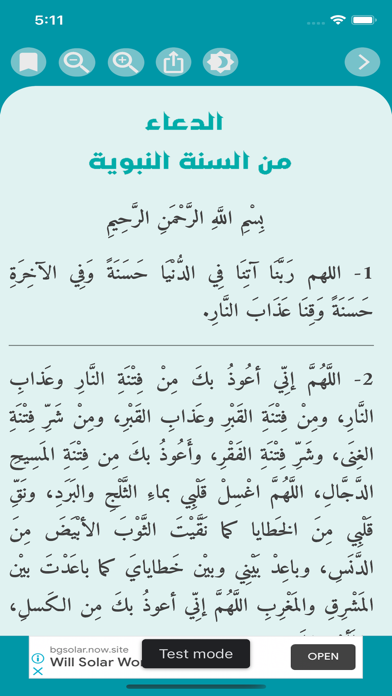 5:11
الدعاء
من السنة النبوية
بِسْمِ اللَّهِ الرَّحْمَنِ الرَّحِيمِ
1- اللهم رَبَّنَا آتِنَا فِي الدُّنْيَا حَسَنَةً وَفِي الآخِرَةِ
حَسَنَةً وَقِنَا عَذَابَ النَّارِ.
2- اللَّهُمَّ إنِّي أعُوذُ بكَ مِنْ فِتْنَةِ النَّارِ وعَذابِ
النَّارِ، ومِنْ فِتْنَةِ القَبْرِ وعَذابِ القَبْرِ، ومِنْ شَرِّ فِتْنَةِ
الغِنَى، وشَرِّ فِتْنَةِ الفَقْرِ، وأَعُوذُ بكَ مِن فِتْنَةِ المَسِيحِ
الدَّجَّالِ، اللَّهُمَّ اغْسِلْ قَلْبِي بماءِ الثَّلْجِ والبَرَدِ، ونَقِّ
قَلْبِي مِنَ الخَطايا كما نَقَّيْتَ الثَّوْبَ الأبْيَضَ مِنَ
الدَّنَسِ، وباعِدْ بَيْنِي وبيْن خَطايايَ كما باعَدْتَ بيْن
المَشْرِقِ والمَغْرِبِ اللَّهُمَّ إنِّي أعوذُ بكَ مِن الكَسلِ،
bgsolar.now.site
Will Solar Wor
Test mode
OPEN